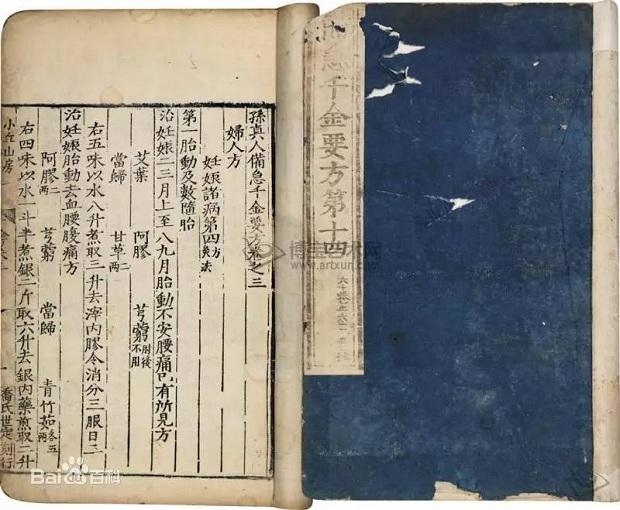 備急千金要方第十四
孫真人備急千金要方卷之三
婦人方
妊娠諸病第四
第一胎動及數墮胎
治妊娠二三月上至八九月胎動不安腰痛已有所見方
艾葉 阿膠 芎藭 肘後不用
當歸 甘草
右五味以水八升煮取三升去滓內膠令消分三服日三
治妊娠胎動去血腰腹痛方
阿膠 芎藭 當歸 青竹茹
右四味以水一斗半煮銀二斤取六升去銀內藥煎取二升
小丘山房
喬氏世定刻行
博宝艺术网
www.artxun.com
Baidu百科